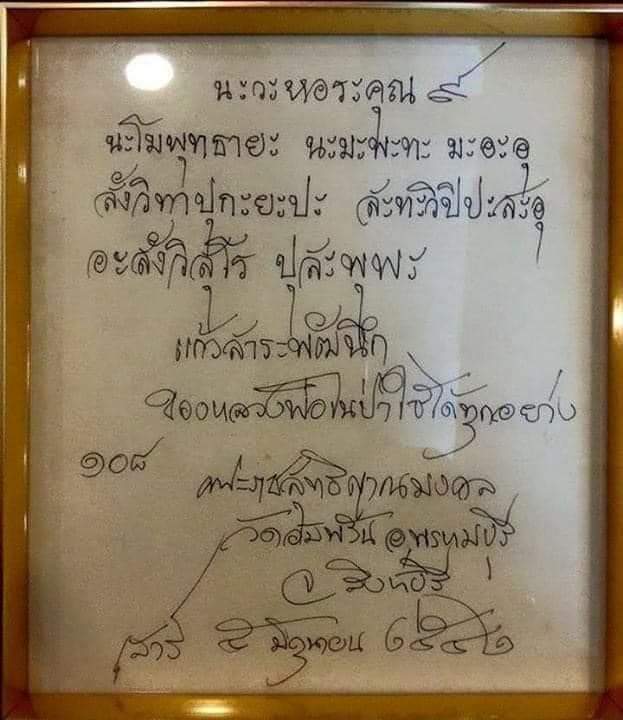 นะวะหอระคุณ ๙
นะโมพุทธายะ นะมะพะทะ มะอะอุ
สังวิทาปุกะยะปะ สะทะวิปิปะสะอุ
อะสังวิสุโร ปุสะพุพะ
แก้วสาระพัฒนึก
ของหลวงพ่อในป่าใช้ได้ทุกอย่าง
๑๐๘
พระราชสุทธิญาณมงคล
วัดอัมพวัน อ.พรหมบุรี
จ สิงห์บุรี
เสาร์ ๕ มิถุนายน